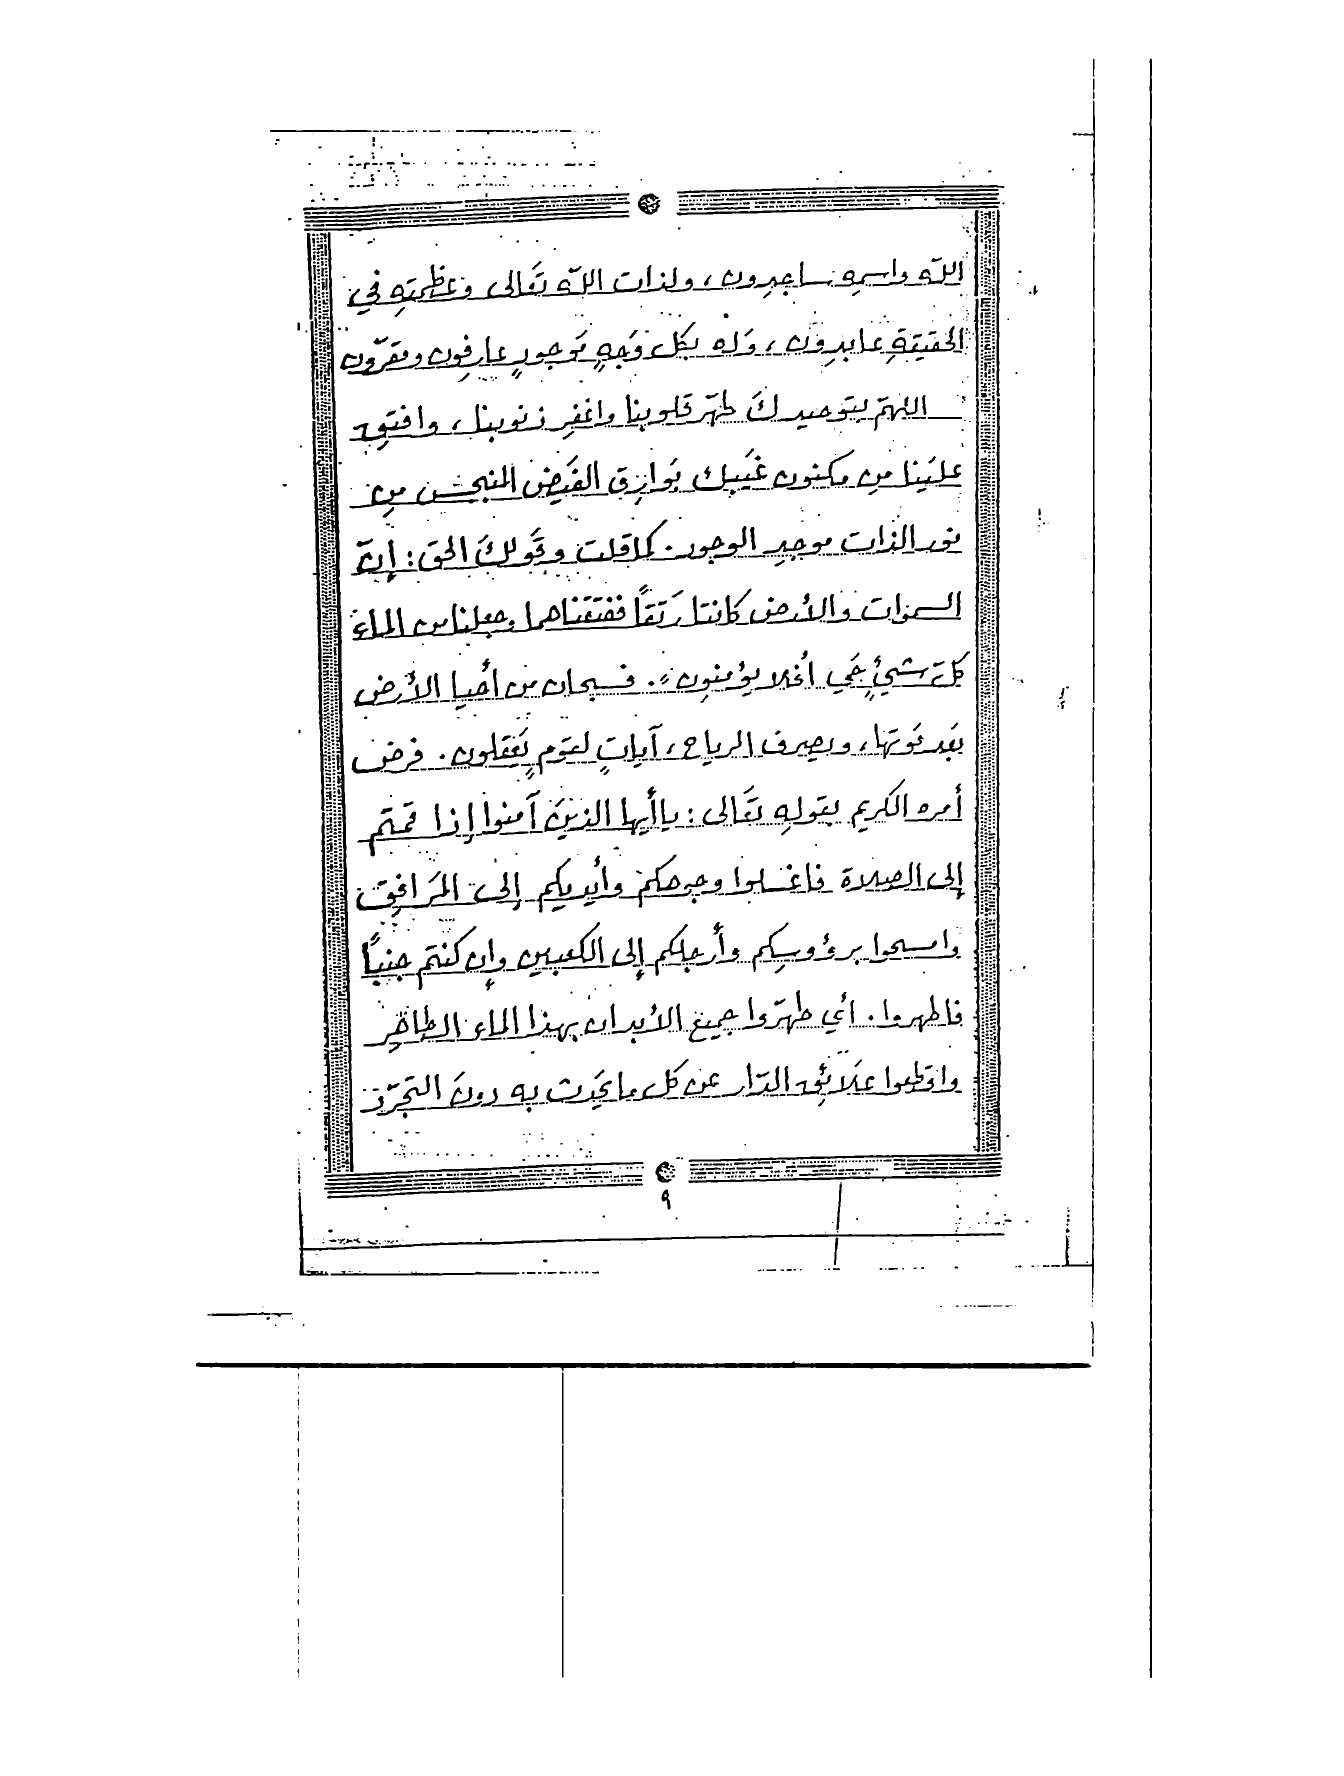 اللّه واسمِه ساجدون، ولذات اللّه تَعَالى وعَظَمَتِهِ في
الحَقيقةِ عابدون، وَلَه بكل وَجهٍ مَوجودٍ عارِفون ومقرّون
اللهمّ بتوحيدكَ طهّر قلوبنا واغفِر ذنوبنا، وافتق
علَينا مِن مكنون غَيبك بَوارِق الفَيض المنبجس مِن
نور الذات موجدِ الوجود. كما قلت وقَولكَ الحقّ: إنّ
السموات والأرض كانتا رَتقاً ففَتَقناهما وجعلنا من الماءَ
كلّ شيئٍ حَي أفلا يؤمنون». فسبحان من أحيا الأرض
بَعد مَوتها، وبصرف الرياح، آياتٍ لقومٍ يَعقلون. فرض
أمره الكريم بقولهِ تعَالى: ياأيها الذينَ آمنوا إذا قمتم
إلى الصلاة فاغسلوا وجوهكم وأيديكم إلى المَرافِق
وامسحوا برؤوسِكم وأرجلكم إلى الكعبين وإن كنتم جنباً
فاطهروا. أي طهّروا جميع الأبدان بهذا الماء الطاهِر
واقطعوا عَلائِق الدّار عن كل ما يحَدث به دونَ التجرّد
٩